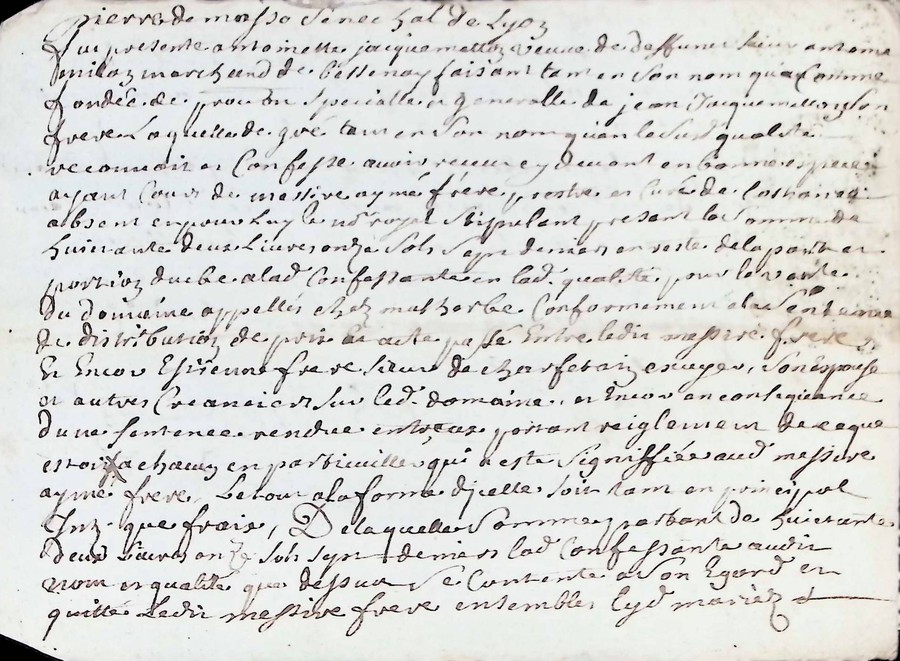 pierre de masso Senechal de Lyon
fut presente antoinette jacquemetton veuve de deffunct sieur antoine
milon marchand de Bessenay faisant tant en son nom qua Comme
fondée de pron Specialle et generalle de jean Jacquemetton Son
frere Laquelle de gré tant en Son nom quen la Susd qualité
reconnoit et Confesse avoir receue cy devant en bonne espece
ayant Cours de messire aymé frere, prestre et Curé de
absent et pour luy le no royal Stipulant presant la Somme de
huictante deux Livres onze Sols Sept deniers en reste de la part et
portion dube a lad Confessante en lad. qualité, pour la vante
du domaine appellés chez malherbe Conformement a la Sentence
de distribution de prix et acte passé Entre ledit messire frere
Et Encor Estienne frere Sieur de escuyer, Son Espouse
et autres Creanciers Sur led. domaine, et Encor en consequance
dune Sentence rendue entreux portant reiglement de ce que
estoit a chacun en particullier qui a esté Signiffiée aud messire
aymé frere, Le tout a la forme dicelle soit tant en principal
Intz. que frais, De laquelle Somme portant de huictante
deux Livres onze Sols Sept deniers lad Confessante audit
nom et qualité que dessus Se Contente a Son Egard et
quitte Ledit messire frere ensembles Lesd mariez